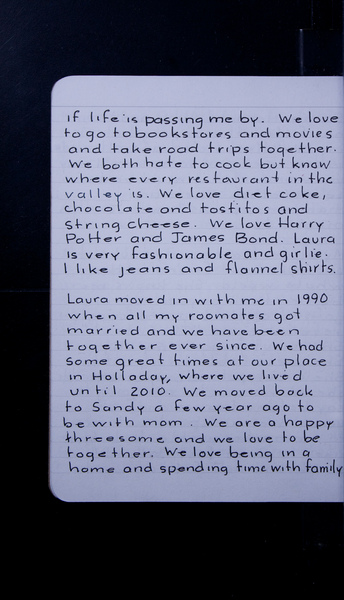 if life is passing me by. We love
to go to bookstores and movies
and take road trips together.
We both hate to cook but know
where every restaurant in the
valley is. We love diet coke,
chocolate and tostitos and
string cheese. We love Harry
Potter and James Bond. Laura
is very fashionable and girlie.
I like jeans and flannel shirts.

Laura moved in with me in 1990
when all my roomates got
married and we have been
together ever since. We had
some great times at our place
in Holladay, where we lived
until 2010. We moved back
to Sandy a few year ago to
be with mom. We are a happy
threesome and we love to be
together. We love being in a
home and spending time with family